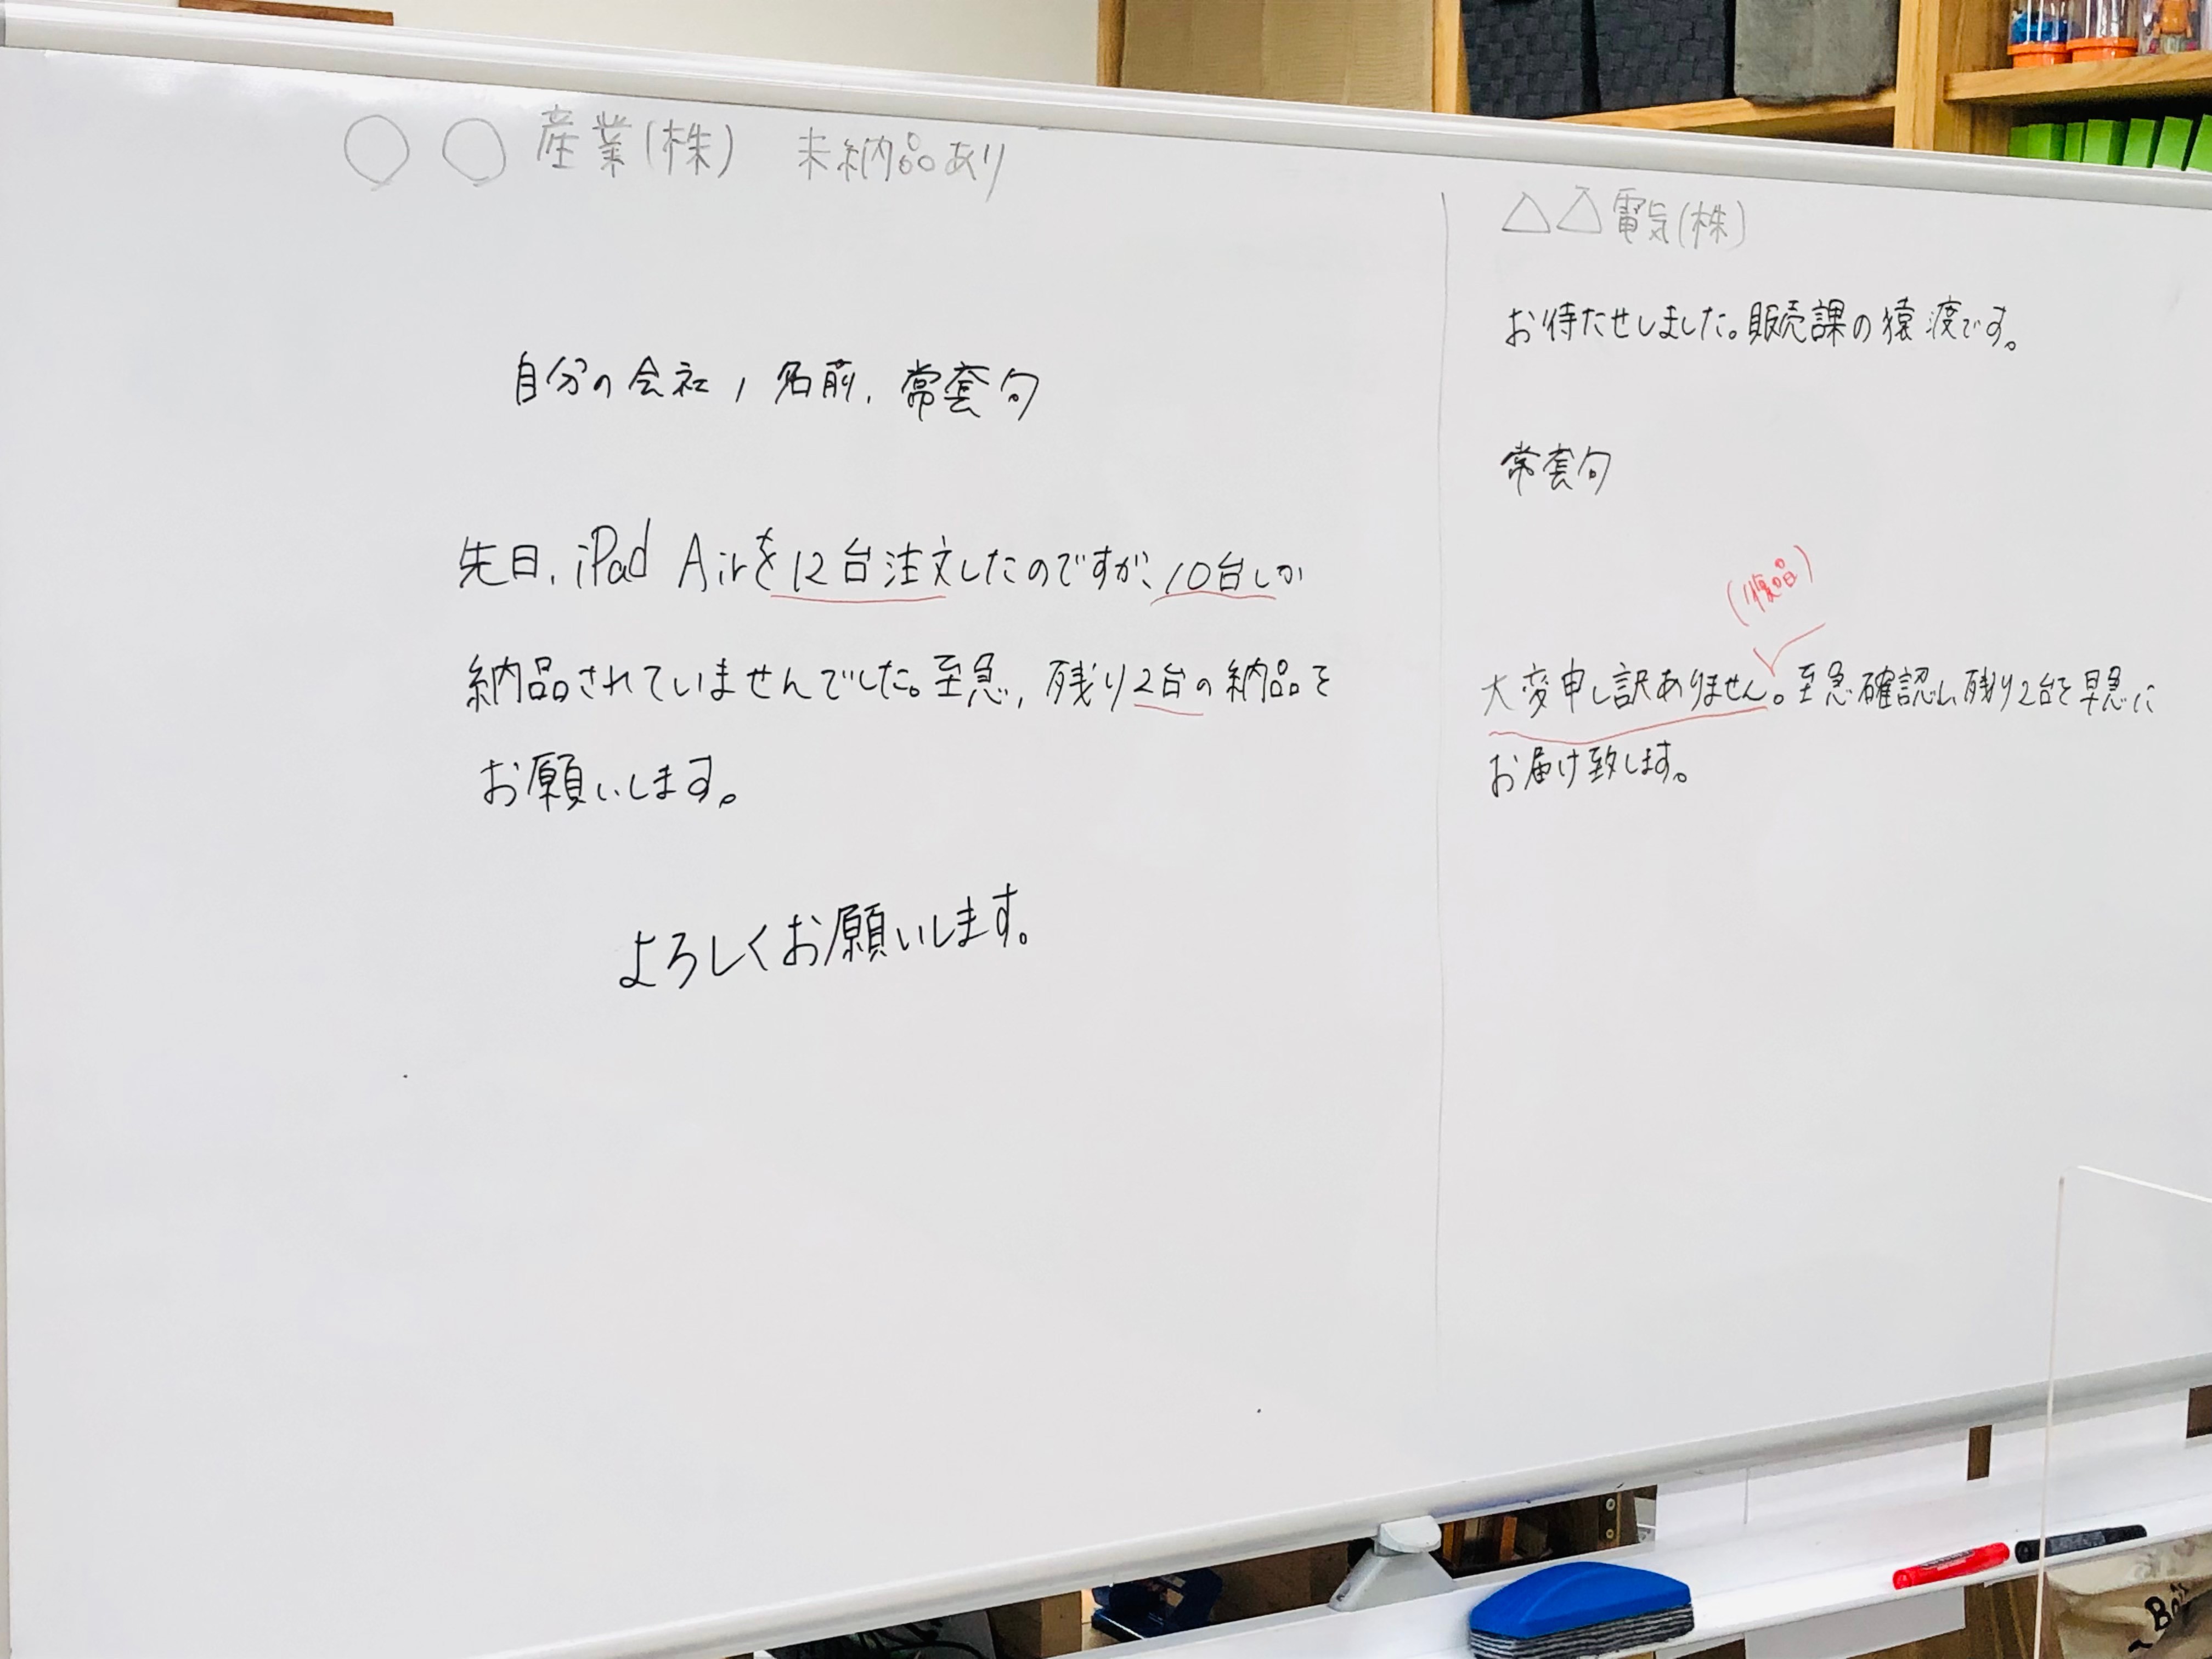 ○○産業(株) 未納品あり
自分の会社, 名前, 常套句
先日, iPad Airを12台注文したのですが、10台しか
納品されていませんでした。至急, 残り2台の納品を
お願いします。
よろしくお願いします。
△△電気(株)
お待たせしました。販売課の猿渡です。
常套句
(復唱)
大変申し訳ありません。至急確認し、残り2台を早急に
お届け致します。